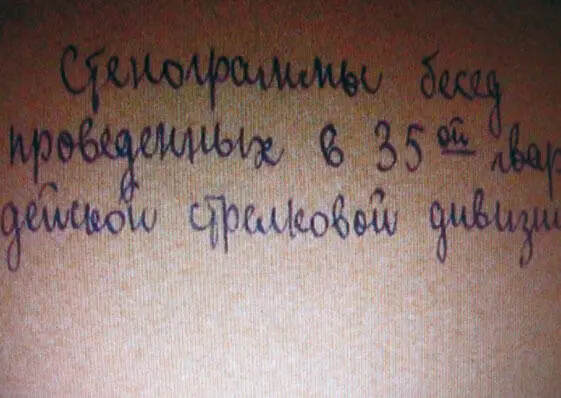 Стенограммы бесед
проведенных в 35ой гвар
дейской стрелковой дивизии